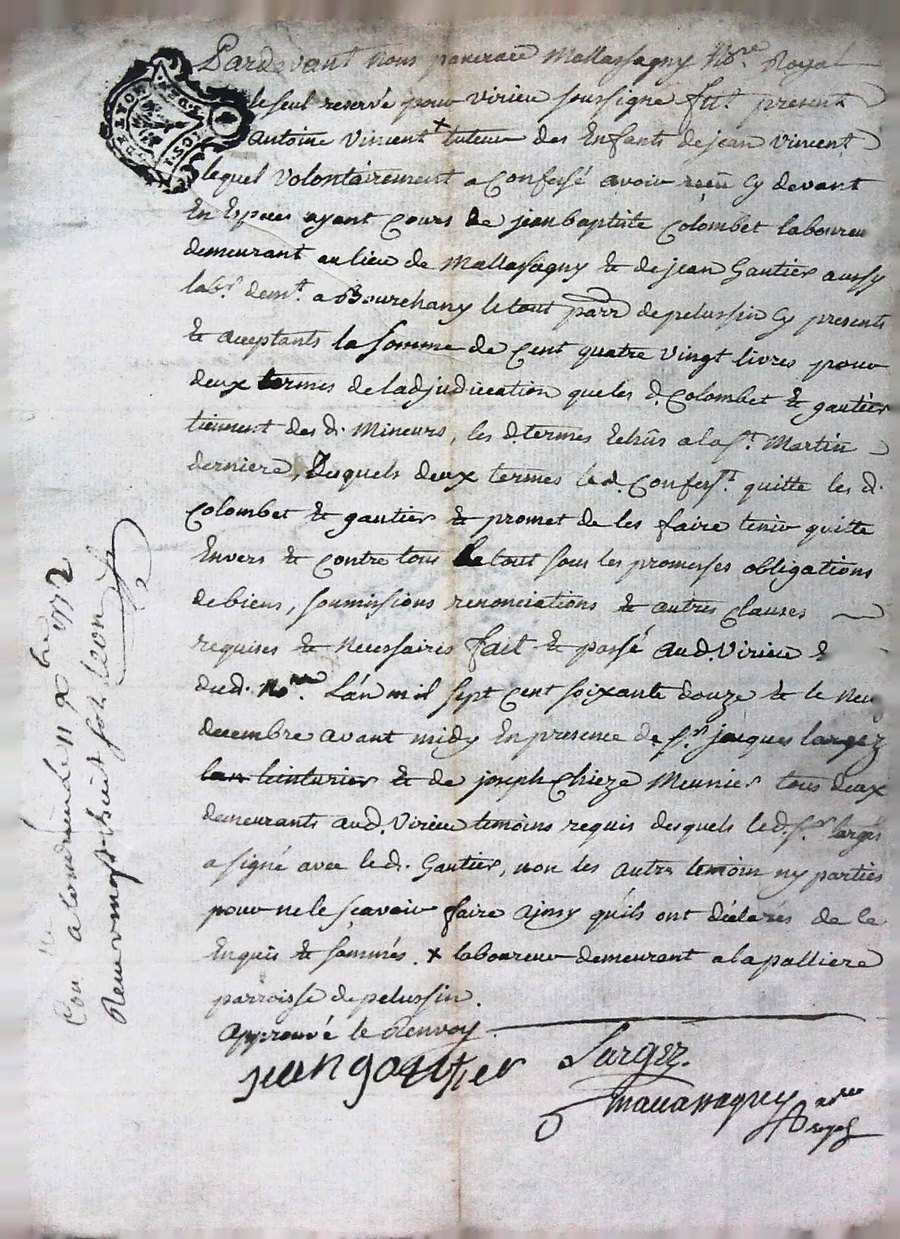 Pardevant Nous pancrace Mallassagny No.re Royal
le seul reservé pour Virieu soussigné fut present
antoine Vincent + tuteur des Enfants de jean Vincent
lequel Volontairement a Confessé avoir reçeu Cy devant
En Especes ayant Cours de jean baptiste Colombet laboureu
demeurant au lieu de Mallassagny & de jean Gautier aussy
lab.r dem.t a Bourchany le tout parr de pelussin Cy presents
& aceptants la somme de Cent quatre Vingt livres pour
deux termes de ladjudication que les d. Colombet & gautier
tiennent des d. Mineurs, les d. termes Echûs a la S.t Martin
derniere, Desquels deux termes le d. Confess.t quitte les d.
Colombet & gautier & promet de les faire tenir quitte
Envers & Contre tous le tout sous les promesses obligations
de biens, soumissions renonciations & autres Clauses
requises & Necessaires fait & passé aud. Virieu E
du d. No.re L'an mil sept Cent soixante douze & le Neu
decembre avant midy En presence de s.r jacques largez
& de joseph Chieze Meunier tous deux
demeurants aud. Virieu temoins requis desquels le d. s.r larges
a signé avec le d. Gautier, non les autre temoin ny parties
pour ne le sçavoir faire ainsy qu'ils ont déclarés de ce
Enquis & sommés. + laboureur demeurant a la palliere
parroisse de pelussin.
Approuvé le Renvoy
jean gautier Largez.
Mallassagny No.re royal
Con.lé a Condrieu le 11 Xbre 1772
Reçu vingt-huit sols